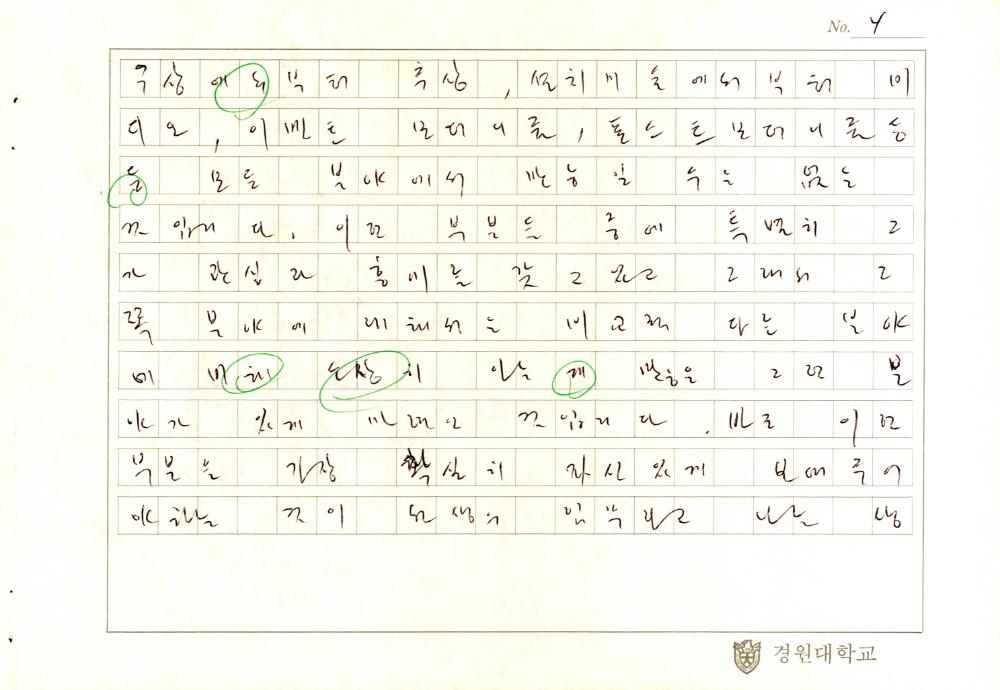 No. 4
구상에서부터 추상, 설치미술에서부터 미
디오, 이벤트 모더니즘, 포스트모더니즘등
등 모든 분야에서 만능일 수는 없는
것입니다. 이런 부분들 중에 특별히 그
가 관심과 흥미를 갖고 있고 그래서 그
쪽 분야에 대해서는 비교적 다른 분야
에 비해 손상히 아는 게 많음을 그런 분
야가 있게 마련인 것입니다. 바로 이런
부분을 가장 확실히 자신있게 보여주어
야 하는 것이 선생의 임무라고 나는 생
경원대학교